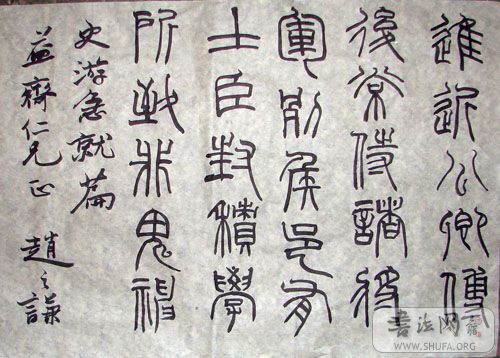 進近公卿傅
後常侍諸將
軍列侯邑有
土臣封積學
所致非鬼神
史游急就篇
益齊仁兄正 趙之謙
書法网
WWW.SHUFA.ORG